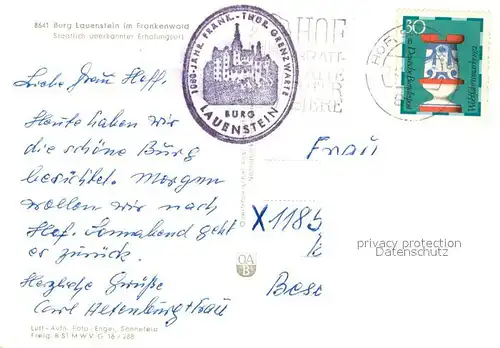 8641 Burg Lauenstein im Frankenwald
Staatlich anerkannter Erholungsort
1000-JAHR. FRANK.-THÜR. GRENZWARTE
BURG
LAUENSTEIN
HOF
30
Deutsche Bundespost
Liebe Frau Hoff.
Heute haben wir
die schöne Burg
besichtet. Morgen
wollen wir nach
Hof. Sonnabend geht
es zurück.
Herzliche Grüße
Carl Altenburg + Frau
Frau
X1185
Bese
privacy protection
Datenschutz
OA
B
Luft-Aufn. Foto: Enger, Sonnefeld
Freig. B St M W V G 16/288